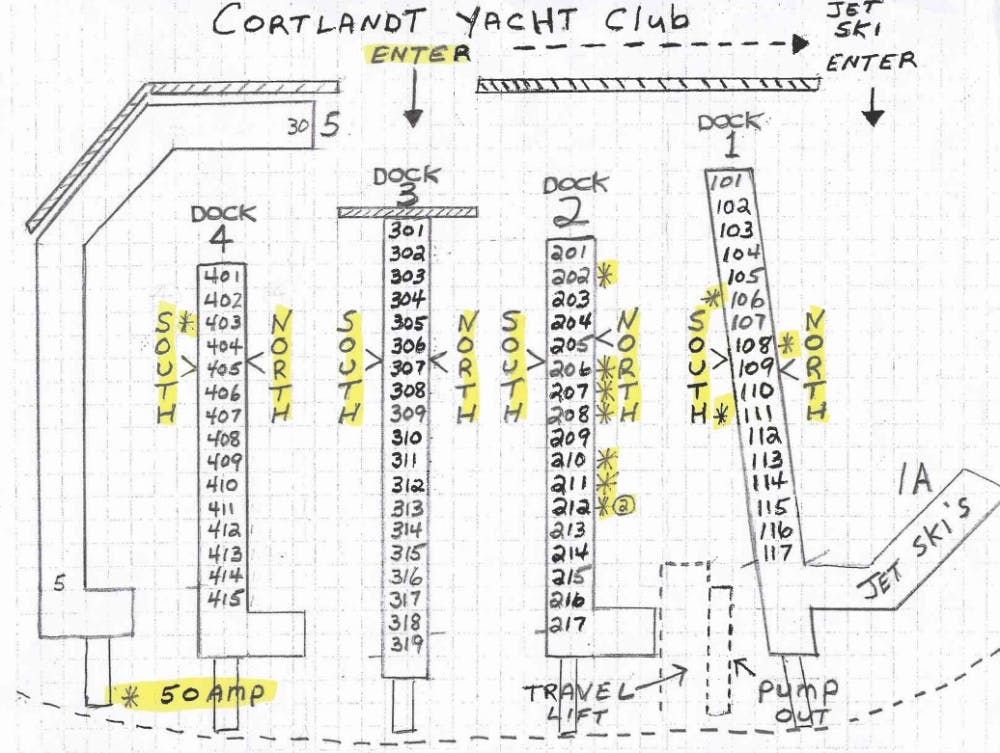 CORTLANDT YACHT Club
JET
SKI
ENTER
ENTER
30
5
DOCK
1
DOCK
2
DOCK
3
DOCK
4
101
102
103
104
105
* 106
107
108 *
109
110
* 111
112
113
114
115
116
117
201
202 *
203
204
205
206 *
207 *
208 *
209
210 *
211 *
212 * 2
213
214
215
216
217
301
302
303
304
305
306
307
308
309
310
311
312
313
314
315
316
317
318
319
401
402
* 403
404
405
406
407
408
409
410
411
412
413
414
415
SOUTH
NORTH
SOUTH
NORTH
SOUTH
NORTH
SOUTH
NORTH
1A
JET SKI'S
5
* 50 AMP
TRAVEL
LIFT
PUMP
OUT